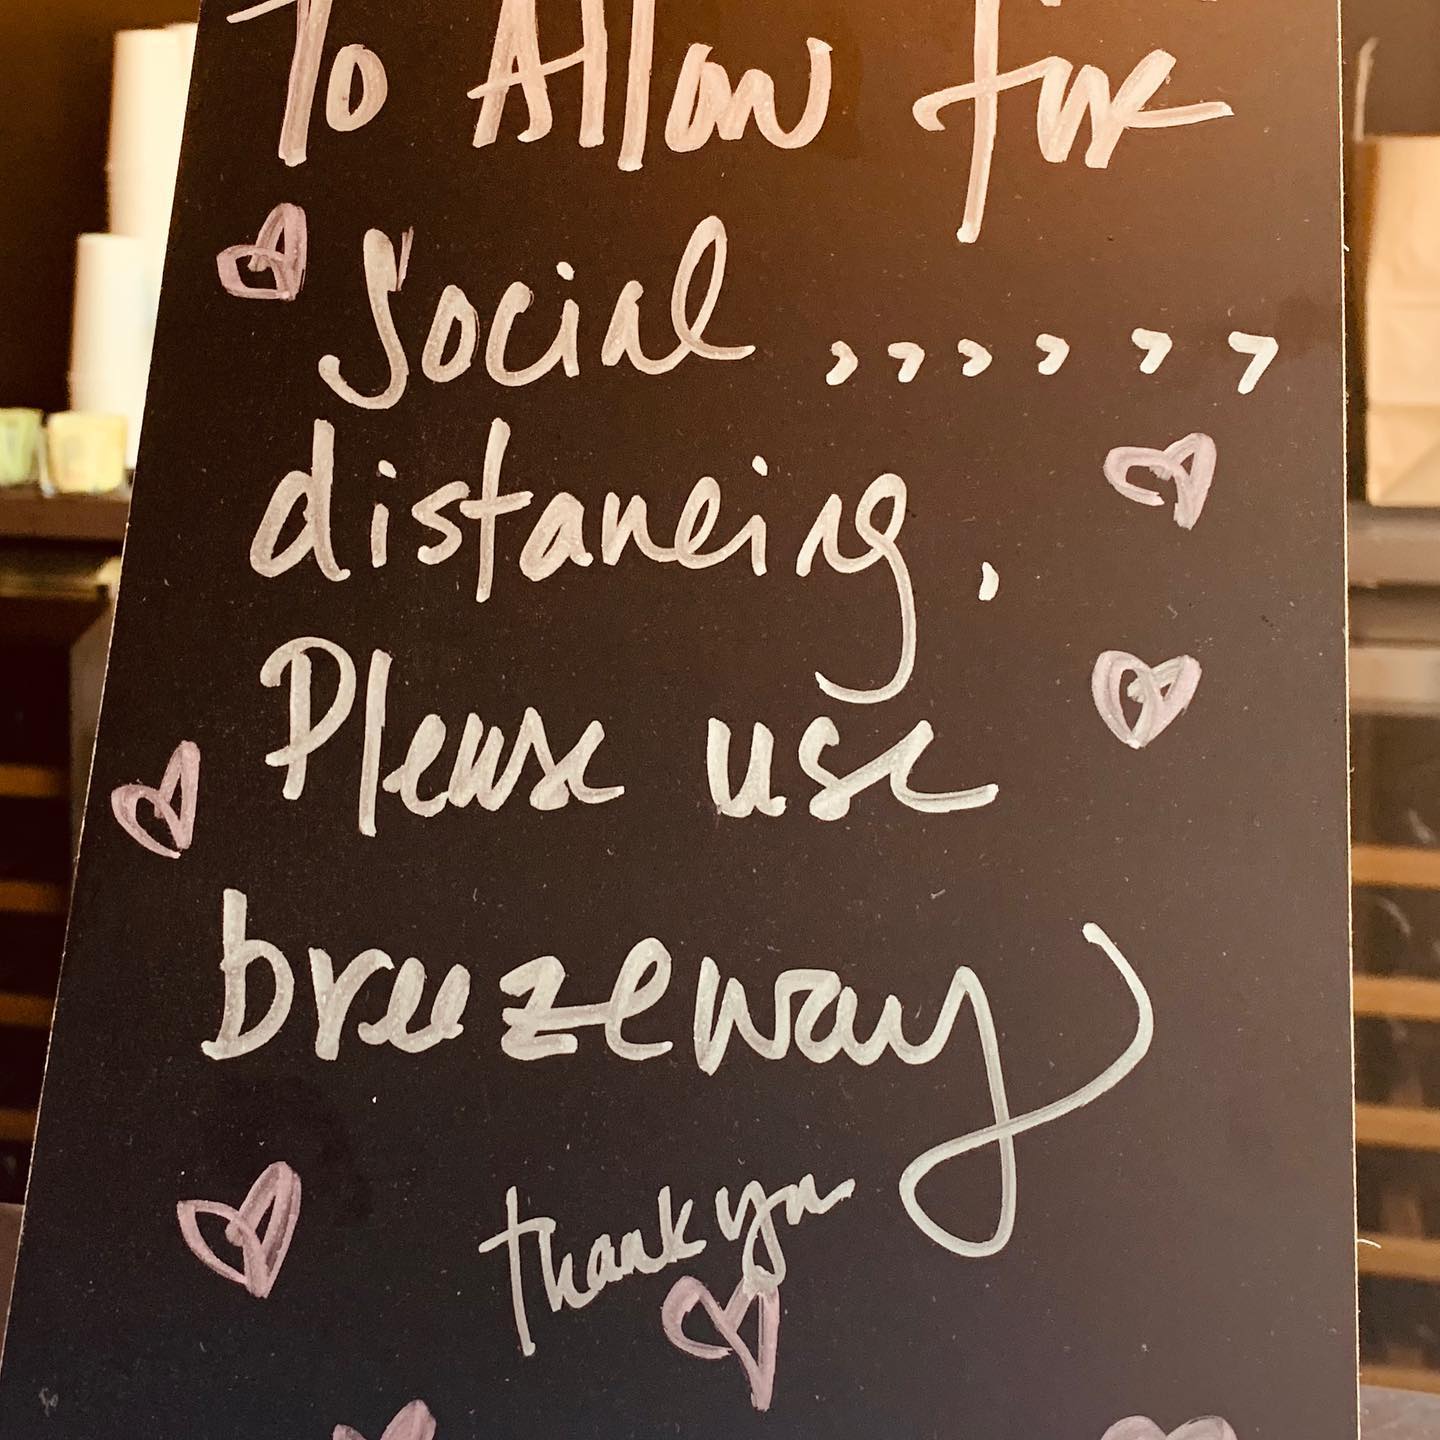 To Allow for
Social , , , , , ,
distancing.
Please use
breezeway
thank you